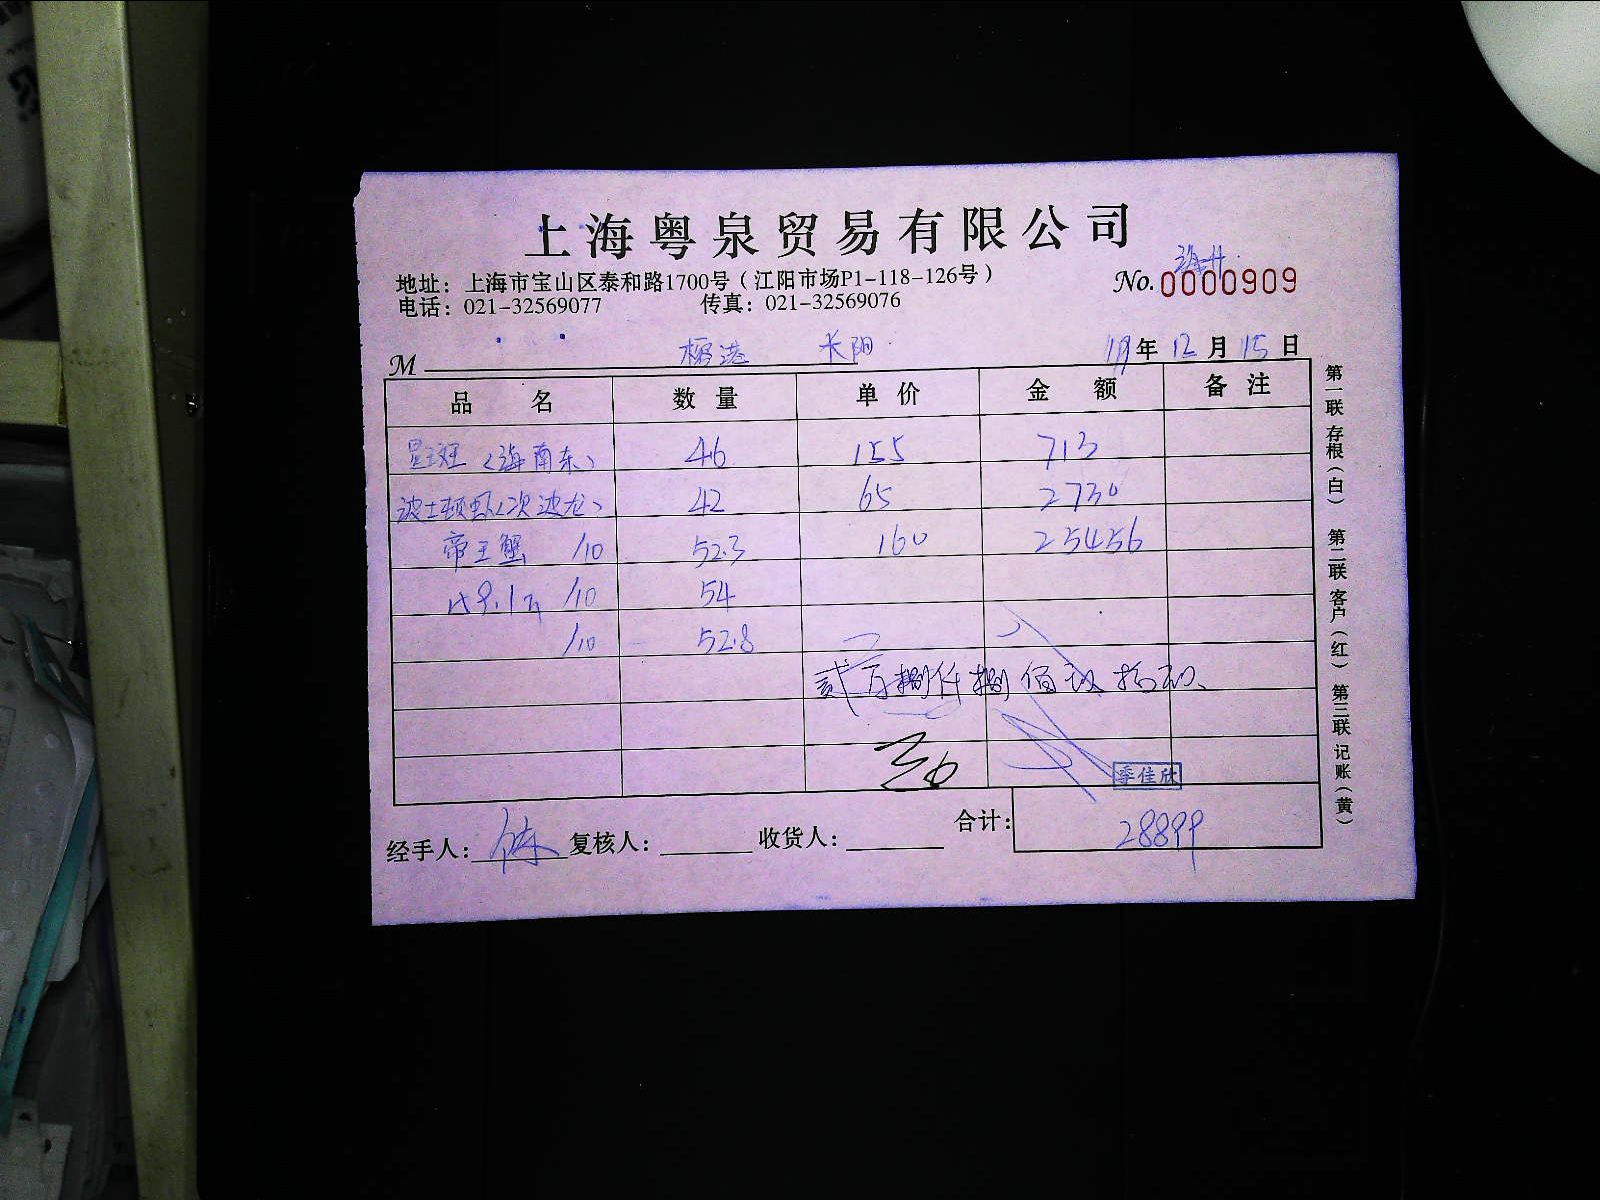 上海粤泉贸易有限公司
地址：上海市宝山区泰和路1700号（江阳市场P1-118-126号）
No. 0000909
电话：021-32569077 传真：021-32569076
M 榕港 长阳 19年 12月 15日
品名 数量 单价 金额 备注
星斑（海南东） 46 155 713
波士顿虾（次波龙） 42 65 2730
帝王蟹 /10 52.3 160 25456
/10 54
/10 52.8
贰万捌仟捌佰玖拾玖
李佳欣
经手人： 复核人： 收货人： 合计： 28899
第一联 存根（白） 第二联 客户（红） 第三联 记账（黄）